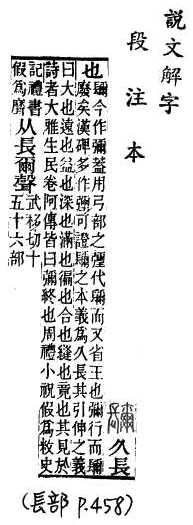 說文解字
段注本
久長
也
镾今作彌蓋用弓部之㣆代镾而又省王也彌行而镾
廢矣漢碑多作彌可證镾之本義爲久長其引伸之義
曰大也遠也益也深也滿也徧也合也縫也竟也其見於
詩者大雅生民卷阿傳皆曰彌終也周禮小祝假爲敉史
記禮書
假爲
从長爾聲
武移切十
五十六部
(長部 P.458)